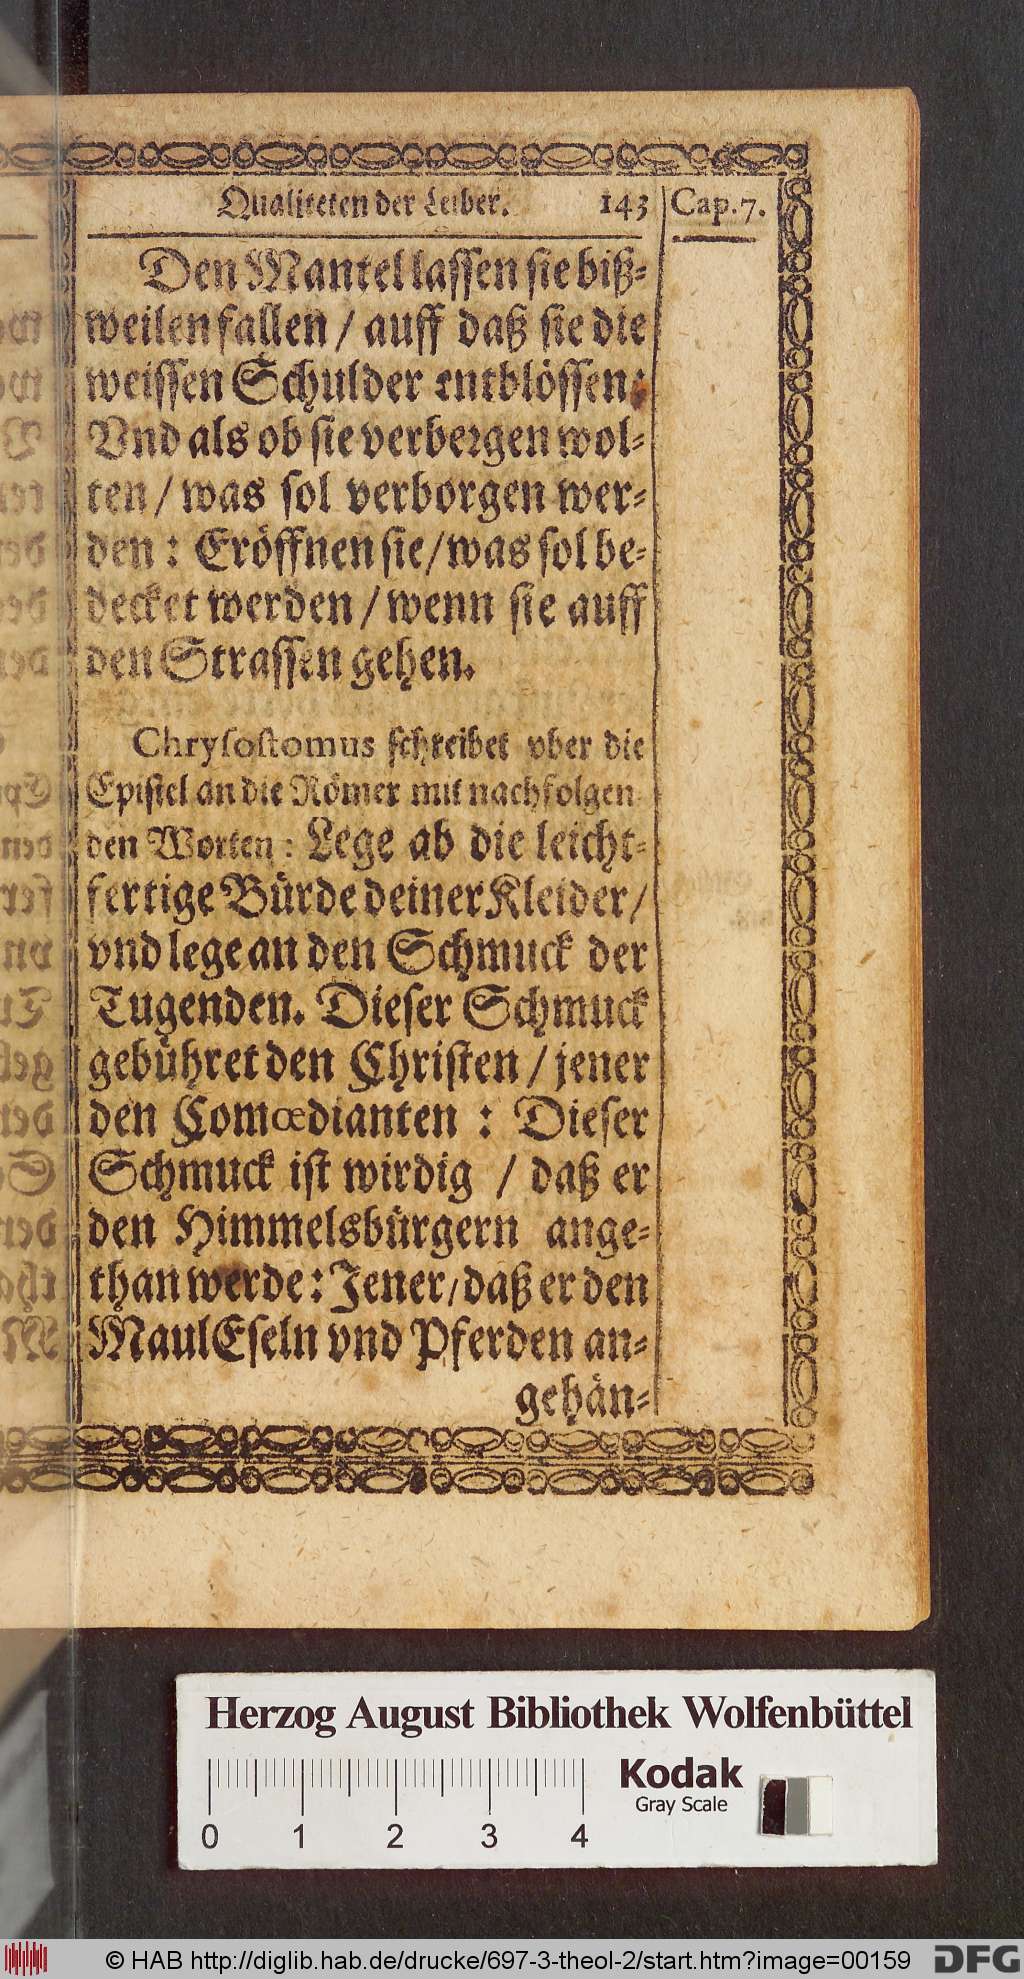 Qualiteten der Leiber. 143 Cap. 7.
Den Mantel lassen sie biß⸗
weilen fallen / auff daß sie die
weissen Schulder entblössen:
Vnd als ob sie verbergen wol⸗
ten / was sol verborgen wer⸗
den : Eröffnen sie / was sol be⸗
decket werden / wenn sie auff
den Strassen gehen.
Chrysostomus schreibet vber die
Epistel an die Römer mit nachfolgen⸗
den Worten : Lege ab die leicht⸗
fertige Bürde deiner Kleider /
vnd lege an den Schmuck der
Tugenden. Dieser Schmuck
gebühret den Christen / jener
den Comœdianten : Dieser
Schmuck ist wirdig / daß er
den Himmelsbürgern ange⸗
than werde : Jener / daß er den
MaulEseln vnd Pferden an⸗
gehän⸗
Herzog August Bibliothek Wolfenbüttel
Kodak
Gray Scale
0 1 2 3 4
© HAB http://diglib.hab.de/drucke/697-3-theol-2/start.htm?image=00159
DFG